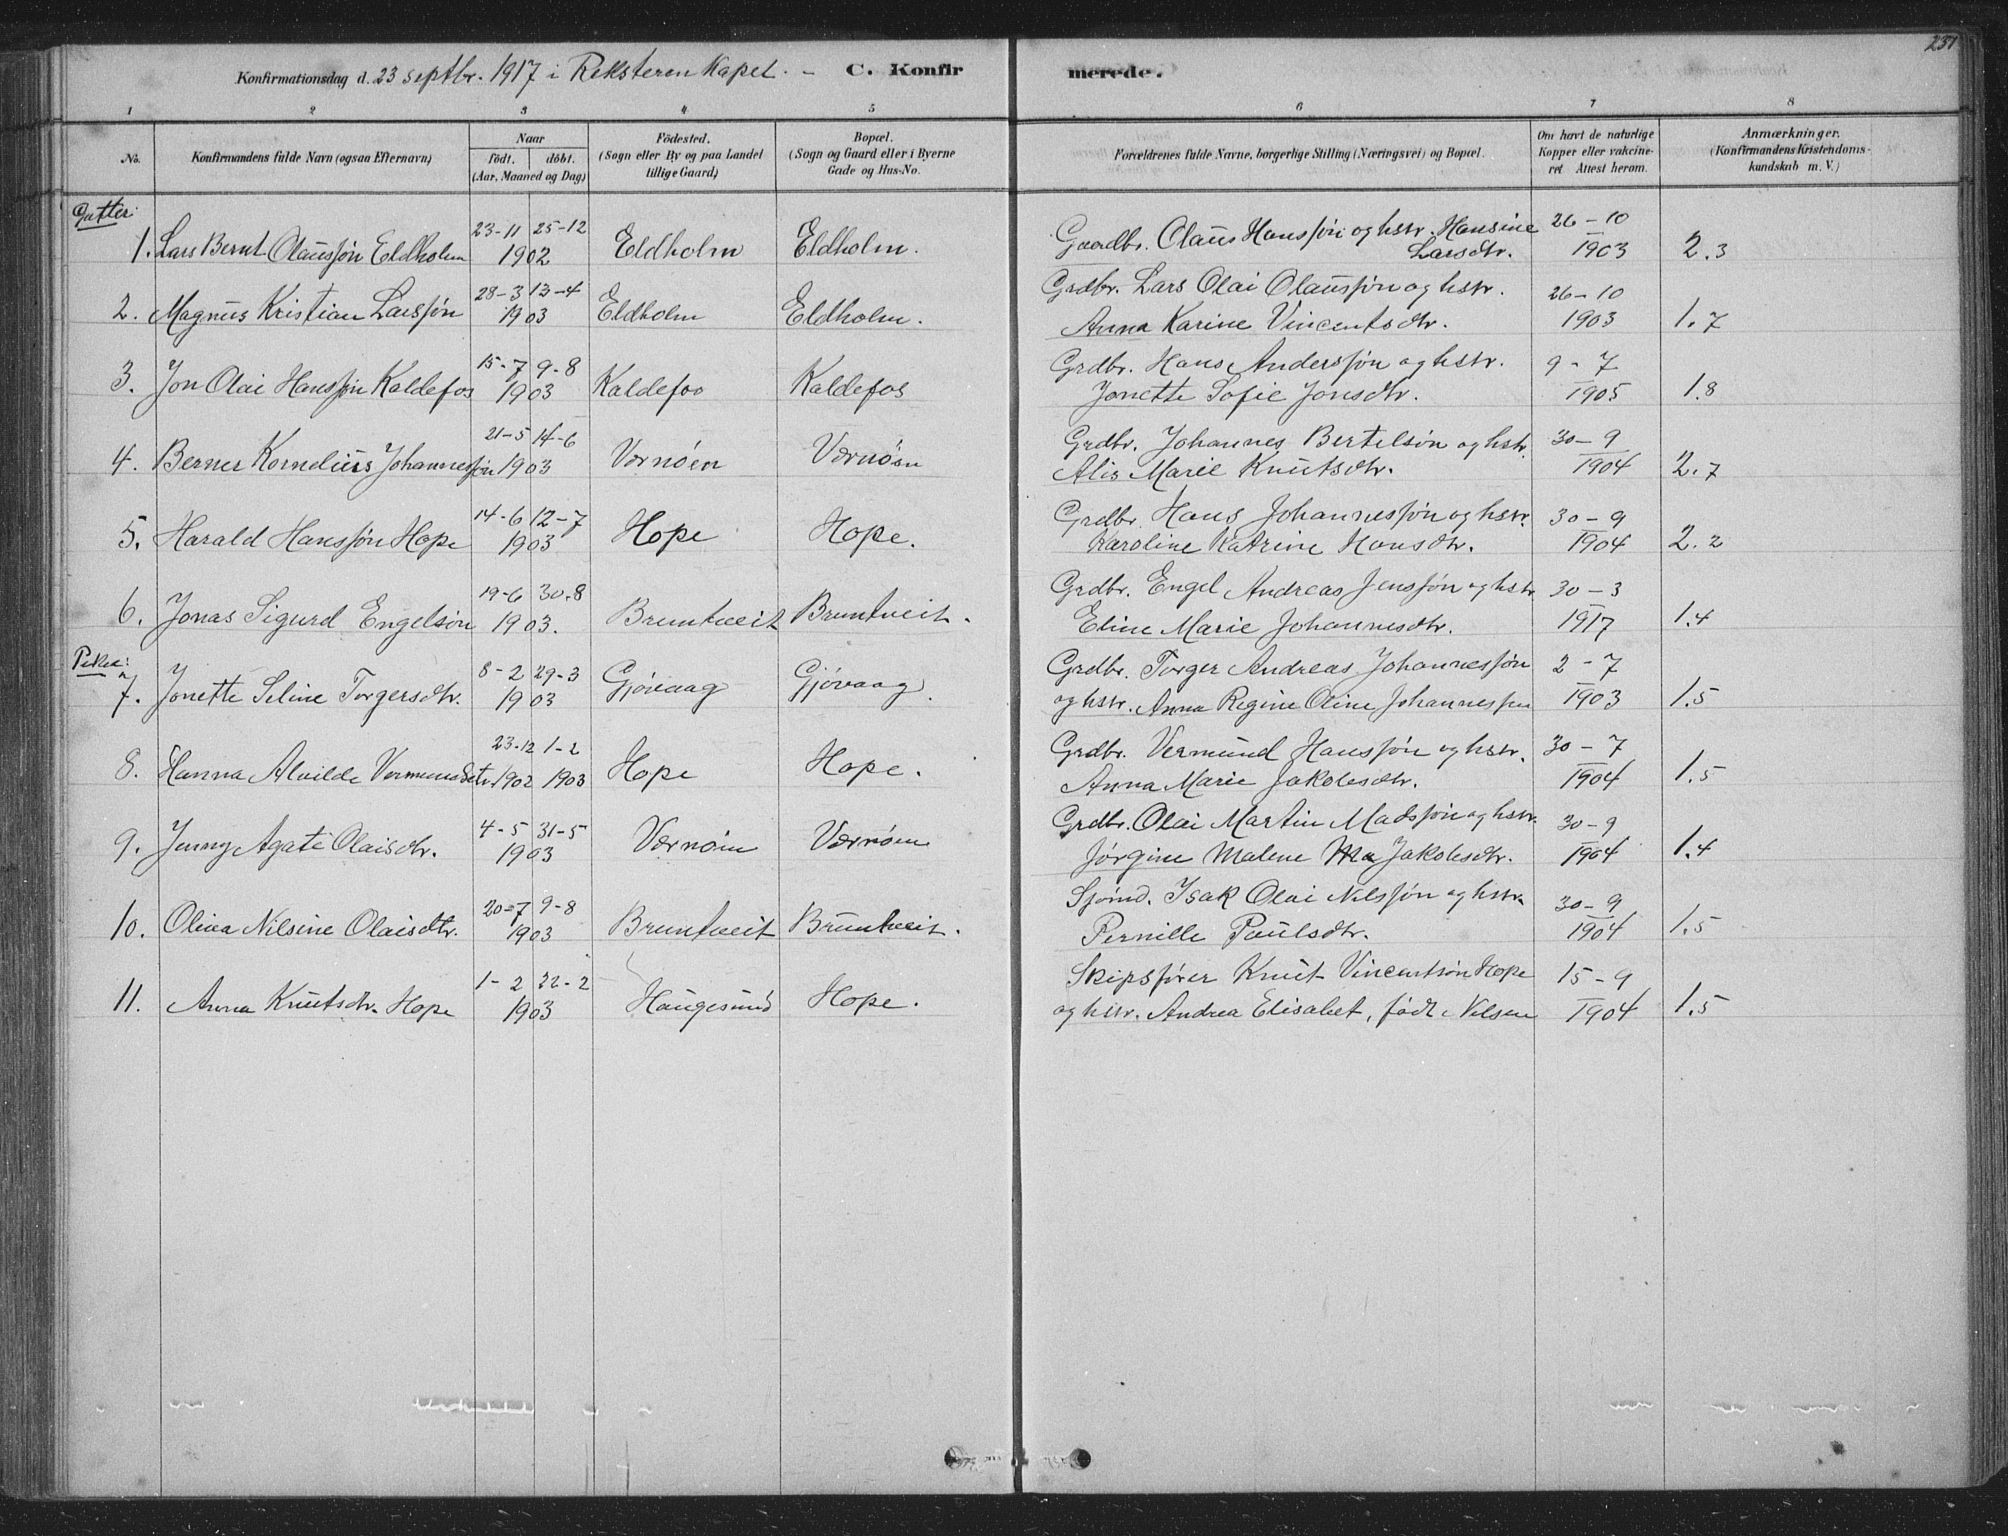 231
Konfirmationsdag d. 23 septbr. 1917 i Reksteren Kapel. – C. Konfirmerede.
1 2 3 4 5 6 7 8
No.
Konfirmandens fulde Navn (ogsaa Efternavn)
Naar
födt. döbt.
(Aar, Maaned og Dag)
Födested.
(Sogn eller By og paa Landet
tillige Gaard)
Bopæl.
(Sogn og Gaard eller i Byerne
Gade og Hus-No.
Forældrenes fulde Navne, borgerlige Stilling (Næringsvei) og Bopæl.
Om havt de naturlige
Kopper eller vakcine-
ret Attest herom.
Anmærkninger.
(Konfirmandens Kristendoms-
kundskab m. V.)
Gutter:
23-11 25-12 Gaardbr. Olaus Hanssøn og hstr. Hansine 26-10
1. Lars Bernt Olaussøn Eldholm 1902 Eldholm Eldholm. Larsdtr. 1903 2.3
28-3 13-4 Grdbr. Lars Olai Olaussøn og hstr. 26-10
2. Magnus Kristian Larssøn 1903 Eldholm Eldholm. Anna Karine Vincentsdtr. 1903 1.7
15-7 9-8 Grdbr. Hans Anderssøn og hstr. 9-7
3. Jon Olai Hanssøn Kaldefos 1903 Kaldefos Kaldefos Jonette Sofie Jonsdtr. 1905 1.8
21-5 14-6 Grdbr. Johannes Bertelsøn og hstr. 30-9
4. Berner Kornelius Johannessøn 1903 Vernøen Vernøen Alis Marie Knutsdtr. 1904 2.7
14-6 12-7 Grdbr. Hans Johannessøn og hstr. 30-9
5. Harald Hanssøn Hope 1903 Hope Hope. Karoline Katrine Hansdtr. 1904 2.2
19-6 30-8 Grdbr. Engel Andreas Jenssøn og hstr. 30-3
6. Jonas Sigurd Engelsøn 1903. Bruntveit Bruntveit. Eline Marie Johannesdtr. 1917 1.4
Piker:
8-2 29-3 Grdbr. Torger Andreas Johannessøn 2-7
7. Jonette Seline Torgersdtr. 1903 Gjøvaag Gjøvaag. og hstr. Anna Regine Oline Johannes 1903 1.5
23-12 1-2 Grdbr. Vermund Hanssøn og hstr. 30-7
8. Hanna Alvilde Vermundsdtr. 1902 1903 Hope Hope. Anna Marie Jakobsdtr. 1904 1.5
4-5 31-5 Grdbr. Olai Martin Madssøn og hstr. 30-9
9. Jenny Agate Olaisdtr. 1903 Vernøen Vernøen Jørgine Malene Ma Jakobsdtr. 1904 1.4
20-7 9-8 Sjømd. Isak Olai Nilssøn og hstr. 30-9
10. Olivia Nilsine Olaisdtr. 1903 Bruntveit Bruntveit. Pernille Paulsdtr. 1904 1.5
1-2 22-2 Skipsfører Knut Vincentsøn Hope 15-9
11. Anna Knutsdtr. Hope 1903 Haugesund Hope. og hstr. Andrea Elisabet, født Nilsen 1904 1.5